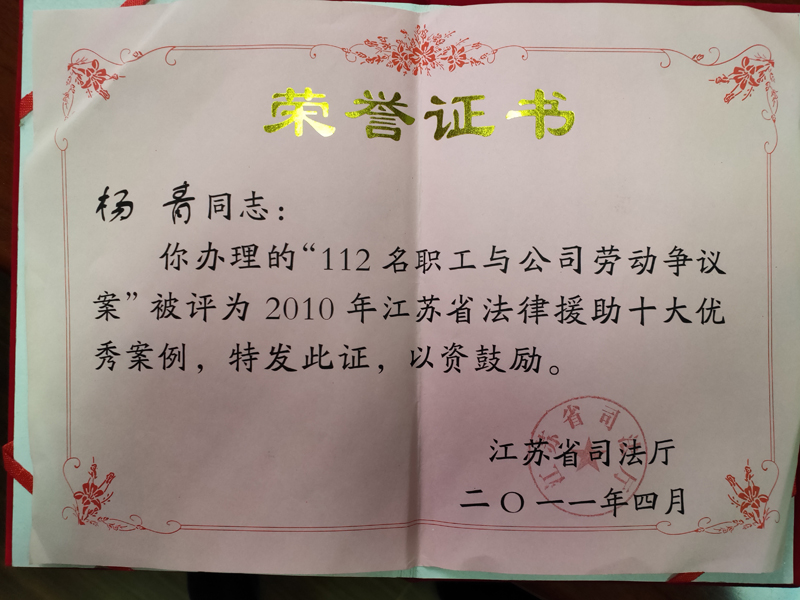 荣誉证书
杨 青同志：
你办理的“112名职工与公司劳动争议
案”被评为 2010 年江苏省法律援助十大优
秀案例，特发此证，以资鼓励。
江苏省司法厅
江苏省司法厅
二〇一一年四月